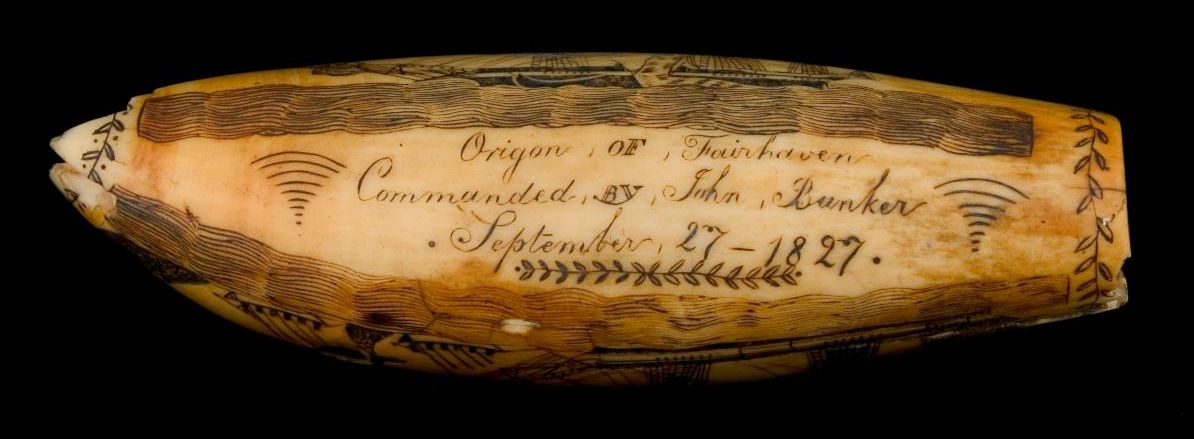 Origon, OF, Fairhaven
Commanded, BY, John, Bunker
. September, 27 – 1827.